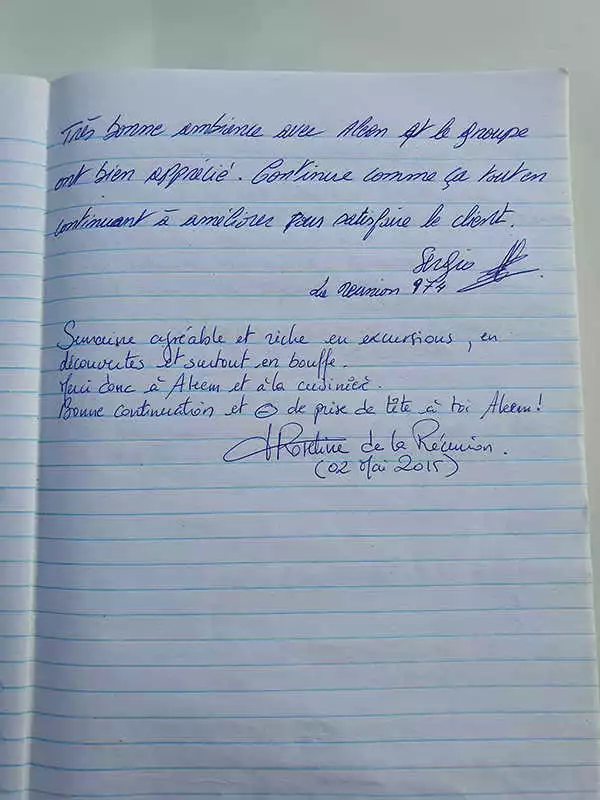 Très bonne ambiance avec Aleem et le groupe
ont bien apprécié. Continue comme ça tout en
continuant à améliorer pour satisfaire le client.
Sergio
La reunion 974
Semaine agréable et riche en excursions, en
découvertes et surtout en bouffe.
Merci donc à Aleem et à la cuisinière.
Bonne continuation et ⊖ de prise de tête à toi Aleem!
Roseline de la Réunion.
(02 Mai 2015)